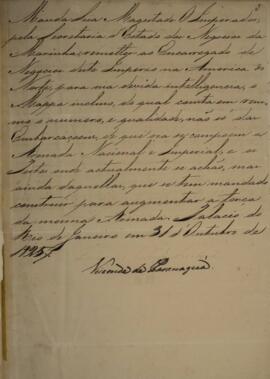 Manda Sua Magestade O Imperador,
pela Secretaria d'Estado dos Negocios da
Marinha, remetter ao Encarregado de
Negocios deste Imperio na America do
Norte, para sua devida intelligencia, o
Mappa incluso, do qual consta em resu-
mo o numero, e qualidade, não só das
Embarcações, de que ora se compoem a
Armada Nacional e Imperial, e os
Portos onde actualmente se achão, mas
ainda daquellas, que se tem mandado
construir para augmentar a força
da mesma Armada. Palacio do
Rio de Janeiro em 31 d'Outubro de
1825.
Visconde de Paranaguá